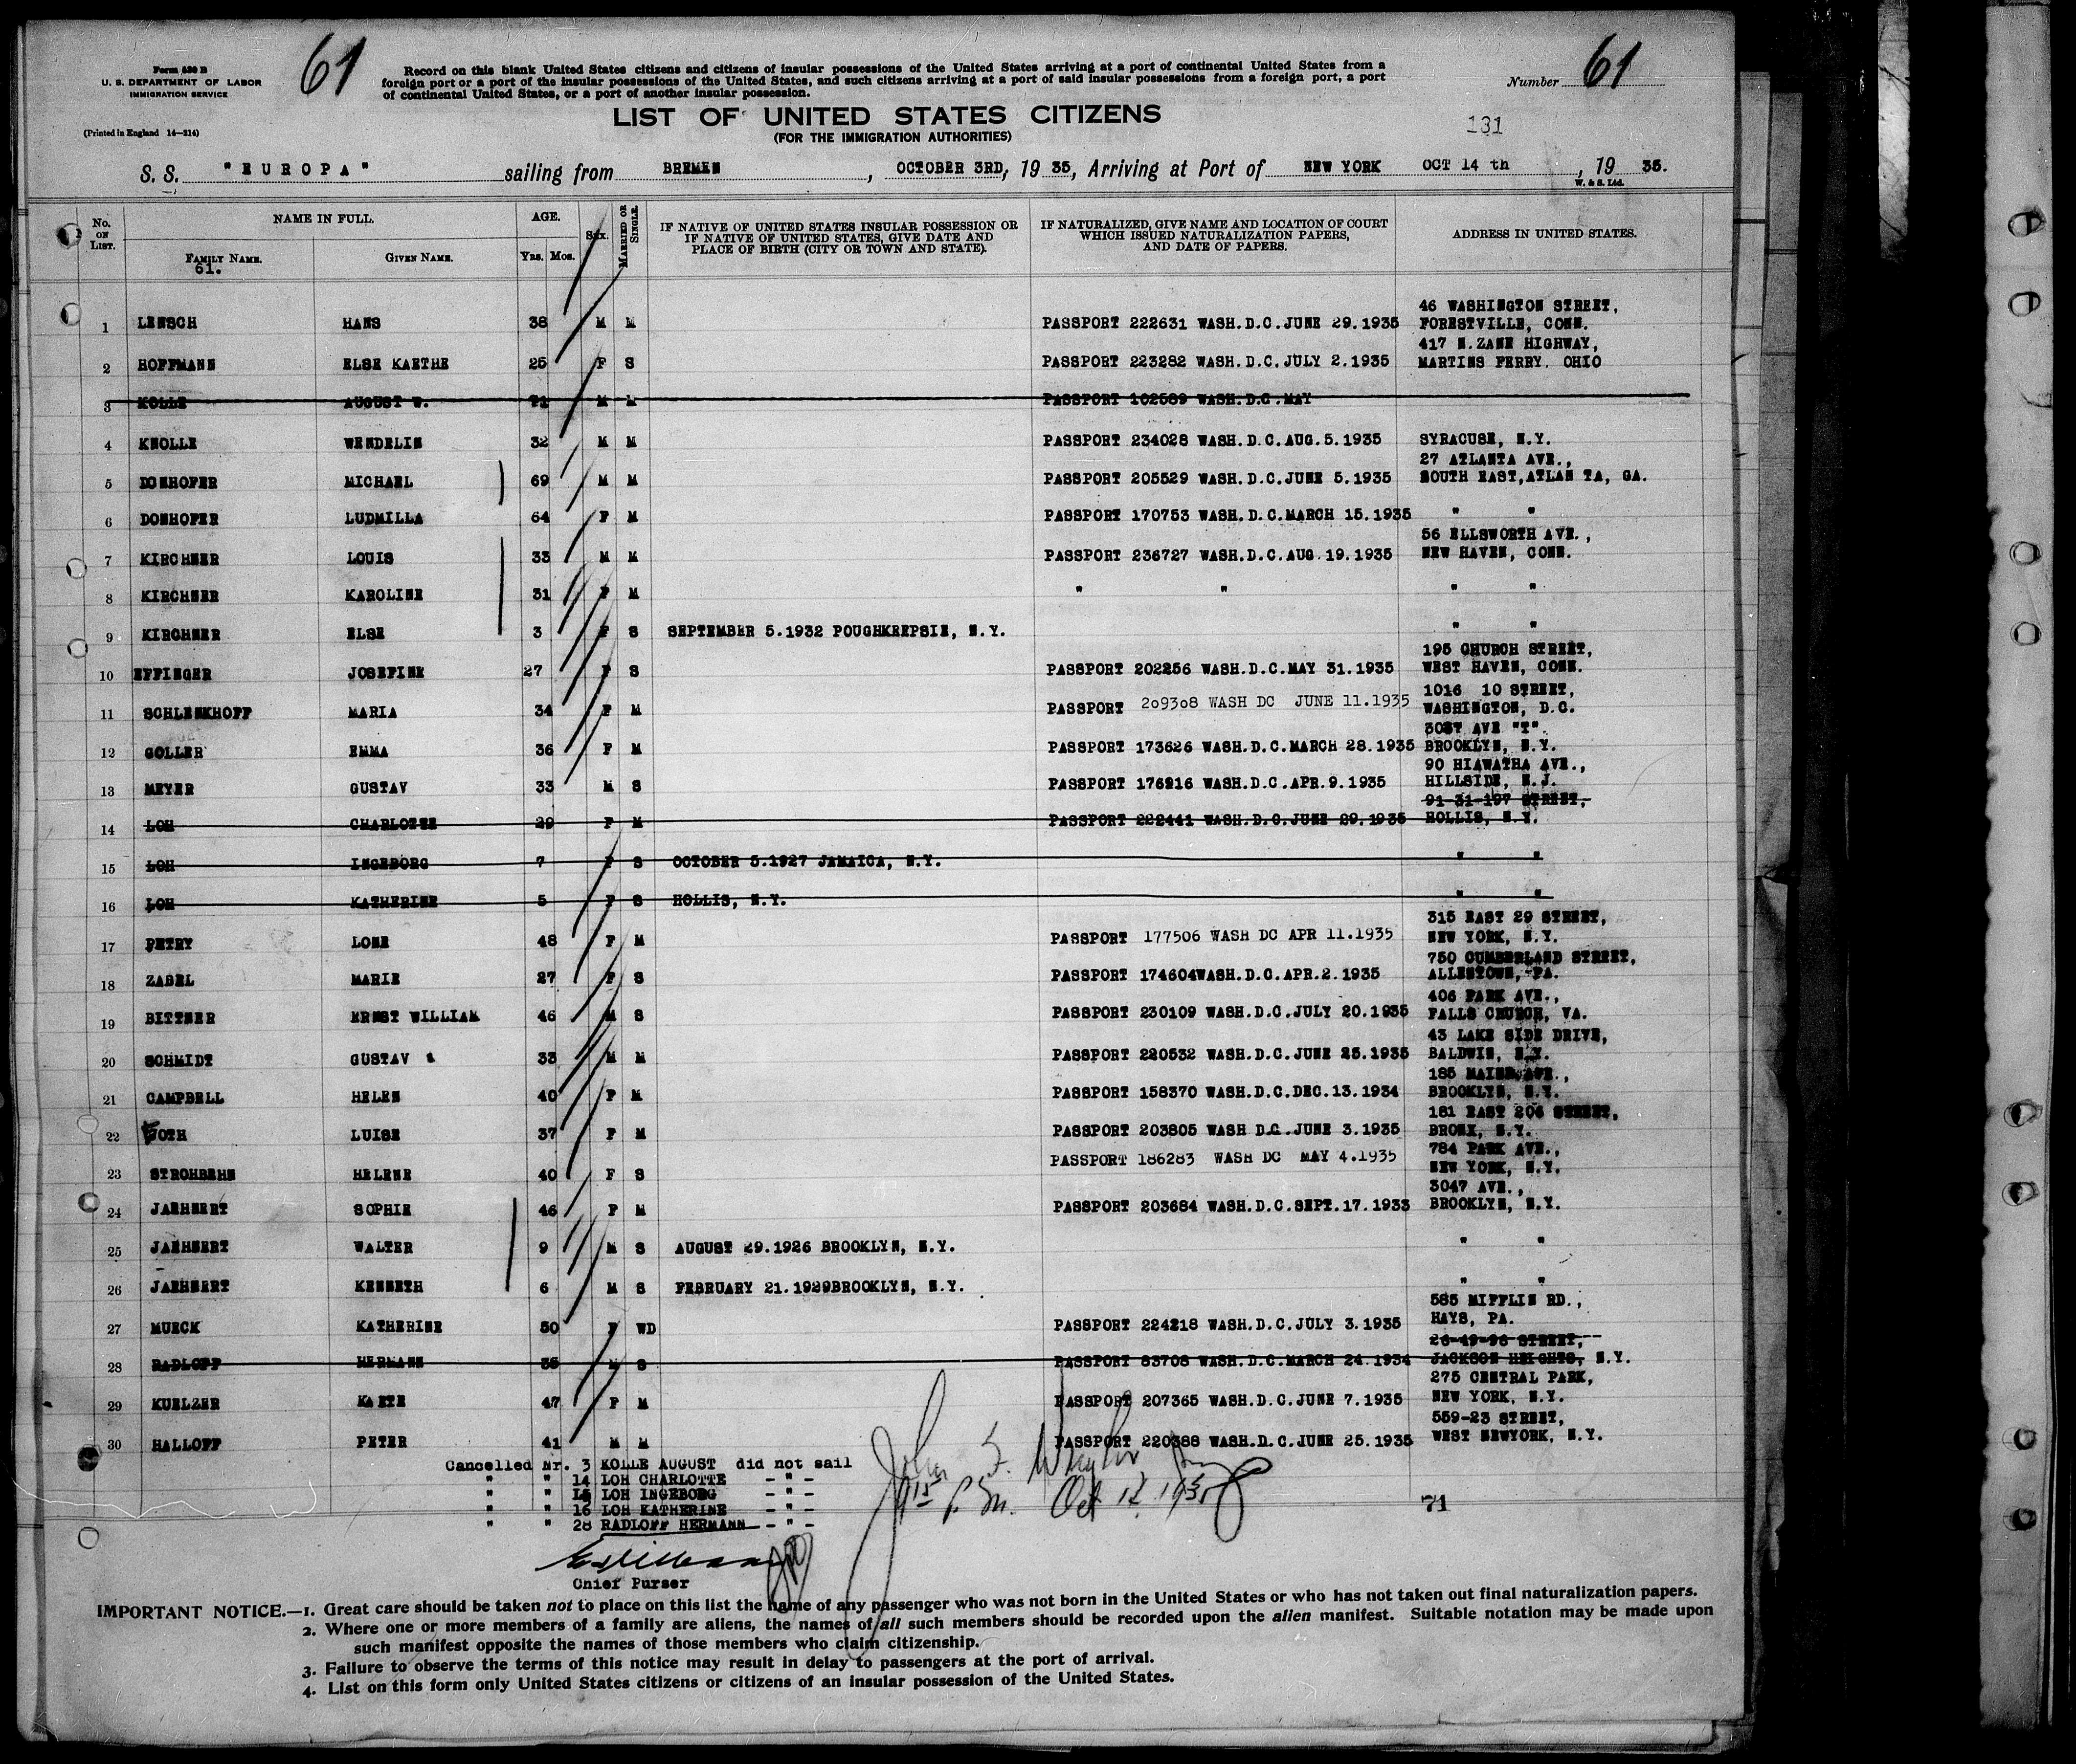 Form 630 B
U. S. DEPARTMENT OF LABOR
IMMIGRATION SERVICE
(Printed in England 14—214)
61
Record on this blank United States citizens and citizens of insular possessions of the United States arriving at a port of continental United States from a
foreign port or a port of the insular possessions of the United States, and such citizens arriving at a port of said insular possessions from a foreign port, a port
of continental United States, or a port of another insular possession.
Number 61
LIST OF UNITED STATES CITIZENS
(FOR THE IMMIGRATION AUTHORITIES)
131
S. S. "EUROPA" sailing from BREMEN, OCTOBER 3RD, 19 35, Arriving at Port of NEW YORK OCT 14 th, 19 35.
W. & S. Ltd.
No. ON LIST. NAME IN FULL. AGE. Sex. MARRIED OR SINGLE. IF NATIVE OF UNITED STATES INSULAR POSSESSION OR IF NATIVE OF UNITED STATES, GIVE DATE AND PLACE OF BIRTH (CITY OR TOWN AND STATE). IF NATURALIZED, GIVE NAME AND LOCATION OF COURT WHICH ISSUED NATURALIZATION PAPERS, AND DATE OF PAPERS. ADDRESS IN UNITED STATES.
FAMILY NAME. GIVEN NAME. Yrs. Mos.
61.
46 WASHINGTON STREET,
1 LENSCH HANS 38 M M PASSPORT 222631 WASH.D.C.JUNE 29.1935 FORESTVILLE, CONN.
417 N.ZANE HIGHWAY,
2 HOFFMANN ELSE KAETHE 25 F S PASSPORT 223282 WASH.D.C.JULY 2.1935 MARTINS FERRY. OHIO
3 KOLLE AUGUST W. 71 M M PASSPORT 102589 WASH.D.C.MAY
4 KNOLLE WENDELIN 32 M M PASSPORT 234028 WASH.D.C.AUG.5.1935 SYRACUSE, N.Y.
27 ATLANTA AVE.,
5 DONHOFER MICHAEL 69 M M PASSPORT 205529 WASH.D.C.JUNE 5.1935 SOUTH EAST,ATLAN TA, GA.
6 DONHOFER LUDMILLA 64 F M PASSPORT 170753 WASH.D.C.MARCH 15.1935 " "
56 ELLSWORTH AVE.,
7 KIRCHNER LOUIS 33 M M PASSPORT 236727 WASH.D.C.AUG.19.1935 NEW HAVEN, CONN.
8 KIRCHNER KAROLINE 31 F M " " " "
9 KIRCHNER ELSE 3 F S SEPTEMBER 5.1932 POUGHKEEPSIE, N.Y. " "
195 CHURCH STREET,
10 EFFINGER JOSEFINE 27 F S PASSPORT 202256 WASH.D.C.MAY 31.1935 WEST HAVEN, CONN.
1016 10 STREET,
11 SCHLENKHOFF MARIA 34 F M PASSPORT 209308 WASH DC JUNE 11.1935 WASHINGTON, D.C.
AVE "T".
12 GOLLER EMMA 36 F M PASSPORT 173626 WASH.D.C.MARCH 28.1935 BROOKLYN, N.Y.
90 HIAWATHA AVE.,
13 MEYER GUSTAV 33 M S PASSPORT 176916 WASH.D.C.APR.9.1935 HILLSIDE, N.J.
91-31-197 STREET,
14 LOH CHARLOTTE 29 F M PASSPORT 222441 WASH.D.C.JUNE 29.1935 HOLLIS, N.Y.
15 LOH INGEBORG 7 F S OCTOBER 5.1927 JAMAICA, N.Y. " "
16 LOH KATHERINE 5 F S HOLLIS, N.Y. " "
315 EAST 29 STREET,
17 PETRY LONE 48 F M PASSPORT 177506 WASH DC APR 11.1935 NEW YORK, N.Y.
750 CUMBERLAND STREET,
18 ZABEL MARIE 27 F S PASSPORT 174604WASH.D.C.APR.2.1935 ALLENTOWN, PA.
406 PARK AVE.,
19 BITTNER ERNST WILLIAM 46 M S PASSPORT 230109 WASH.D.C.JULY 20.1935 FALLS CHURCH, VA.
43 LAKE SIDE DRIVE,
20 SCHMIDT GUSTAV 33 M M PASSPORT 220532 WASH.D.C.JUNE 25.1935 BALDWIN, N.Y.
185 MAINE AVE.,
21 CAMPBELL HELEN 40 F M PASSPORT 158370 WASH.D.C.DEC.13.1934 BROOKLYN, N.Y.
181 EAST 206 STREET,
22 LUISE 37 F M PASSPORT 203805 WASH D.C.JUNE 3.1935 BRONX, N.Y.
784 PARK AVE.,
23 STROHBEHN HELENE 40 F S PASSPORT 186283 WASH DC MAY 4.1935 NEW YORK, N.Y.
3047 AVE.,
24 JAEHNERT SOPHIE 46 F M PASSPORT 203684 WASH.D.C.SEPT.17.1933 BROOKLYN, N.Y.
25 JAEHNERT WALTER 9 M S AUGUST 29.1926 BROOKLYN, N.Y. " "
26 JAEHNERT KENNETH 6 M S FEBRUARY 21.1929BROOKLYN, N.Y. " "
585 MIFFLIN RD.,
27 MUECK KATHERINE 50 F WD PASSPORT 224218 WASH.D.C.JULY 3.1935 HAYS, PA.
26-49-96 STREET,
28 RADLOFF HERMANN 35 M S PASSPORT 83708 WASH.D.C.MARCH 24.1934 JACKSON HEIGHTS, N.Y.
275 CENTRAL PARK,
29 KUELZER KAETE 47 F M PASSPORT 207365 WASH.D.C.JUNE 7.1935 NEW YORK, N.Y.
559-23 STREET,
30 HALLOFF PETER 41 M M PASSPORT 220388 WASH.D.C.JUNE 25.1935 WEST NEWYORK, N.Y.
Cancelled Nr. 3 KOLLE AUGUST did not sail
" " 14 LOH CHARLOTTE - " -
" " 15 LOH INGEBORG - " -
" " 16 LOH KATHERINE - " -
" " 28 RADLOFF HERMANN - " -
John F.
P.M. Oct 12 1935
71
Chief Purser
IMPORTANT NOTICE.—1. Great care should be taken not to place on this list the name of any passenger who was not born in the United States or who has not taken out final naturalization papers.
2. Where one or more members of a family are aliens, the names of all such members should be recorded upon the alien manifest. Suitable notation may be made upon
such manifest opposite the names of those members who claim citizenship.
3. Failure to observe the terms of this notice may result in delay to passengers at the port of arrival.
4. List on this form only United States citizens or citizens of an insular possession of the United States.